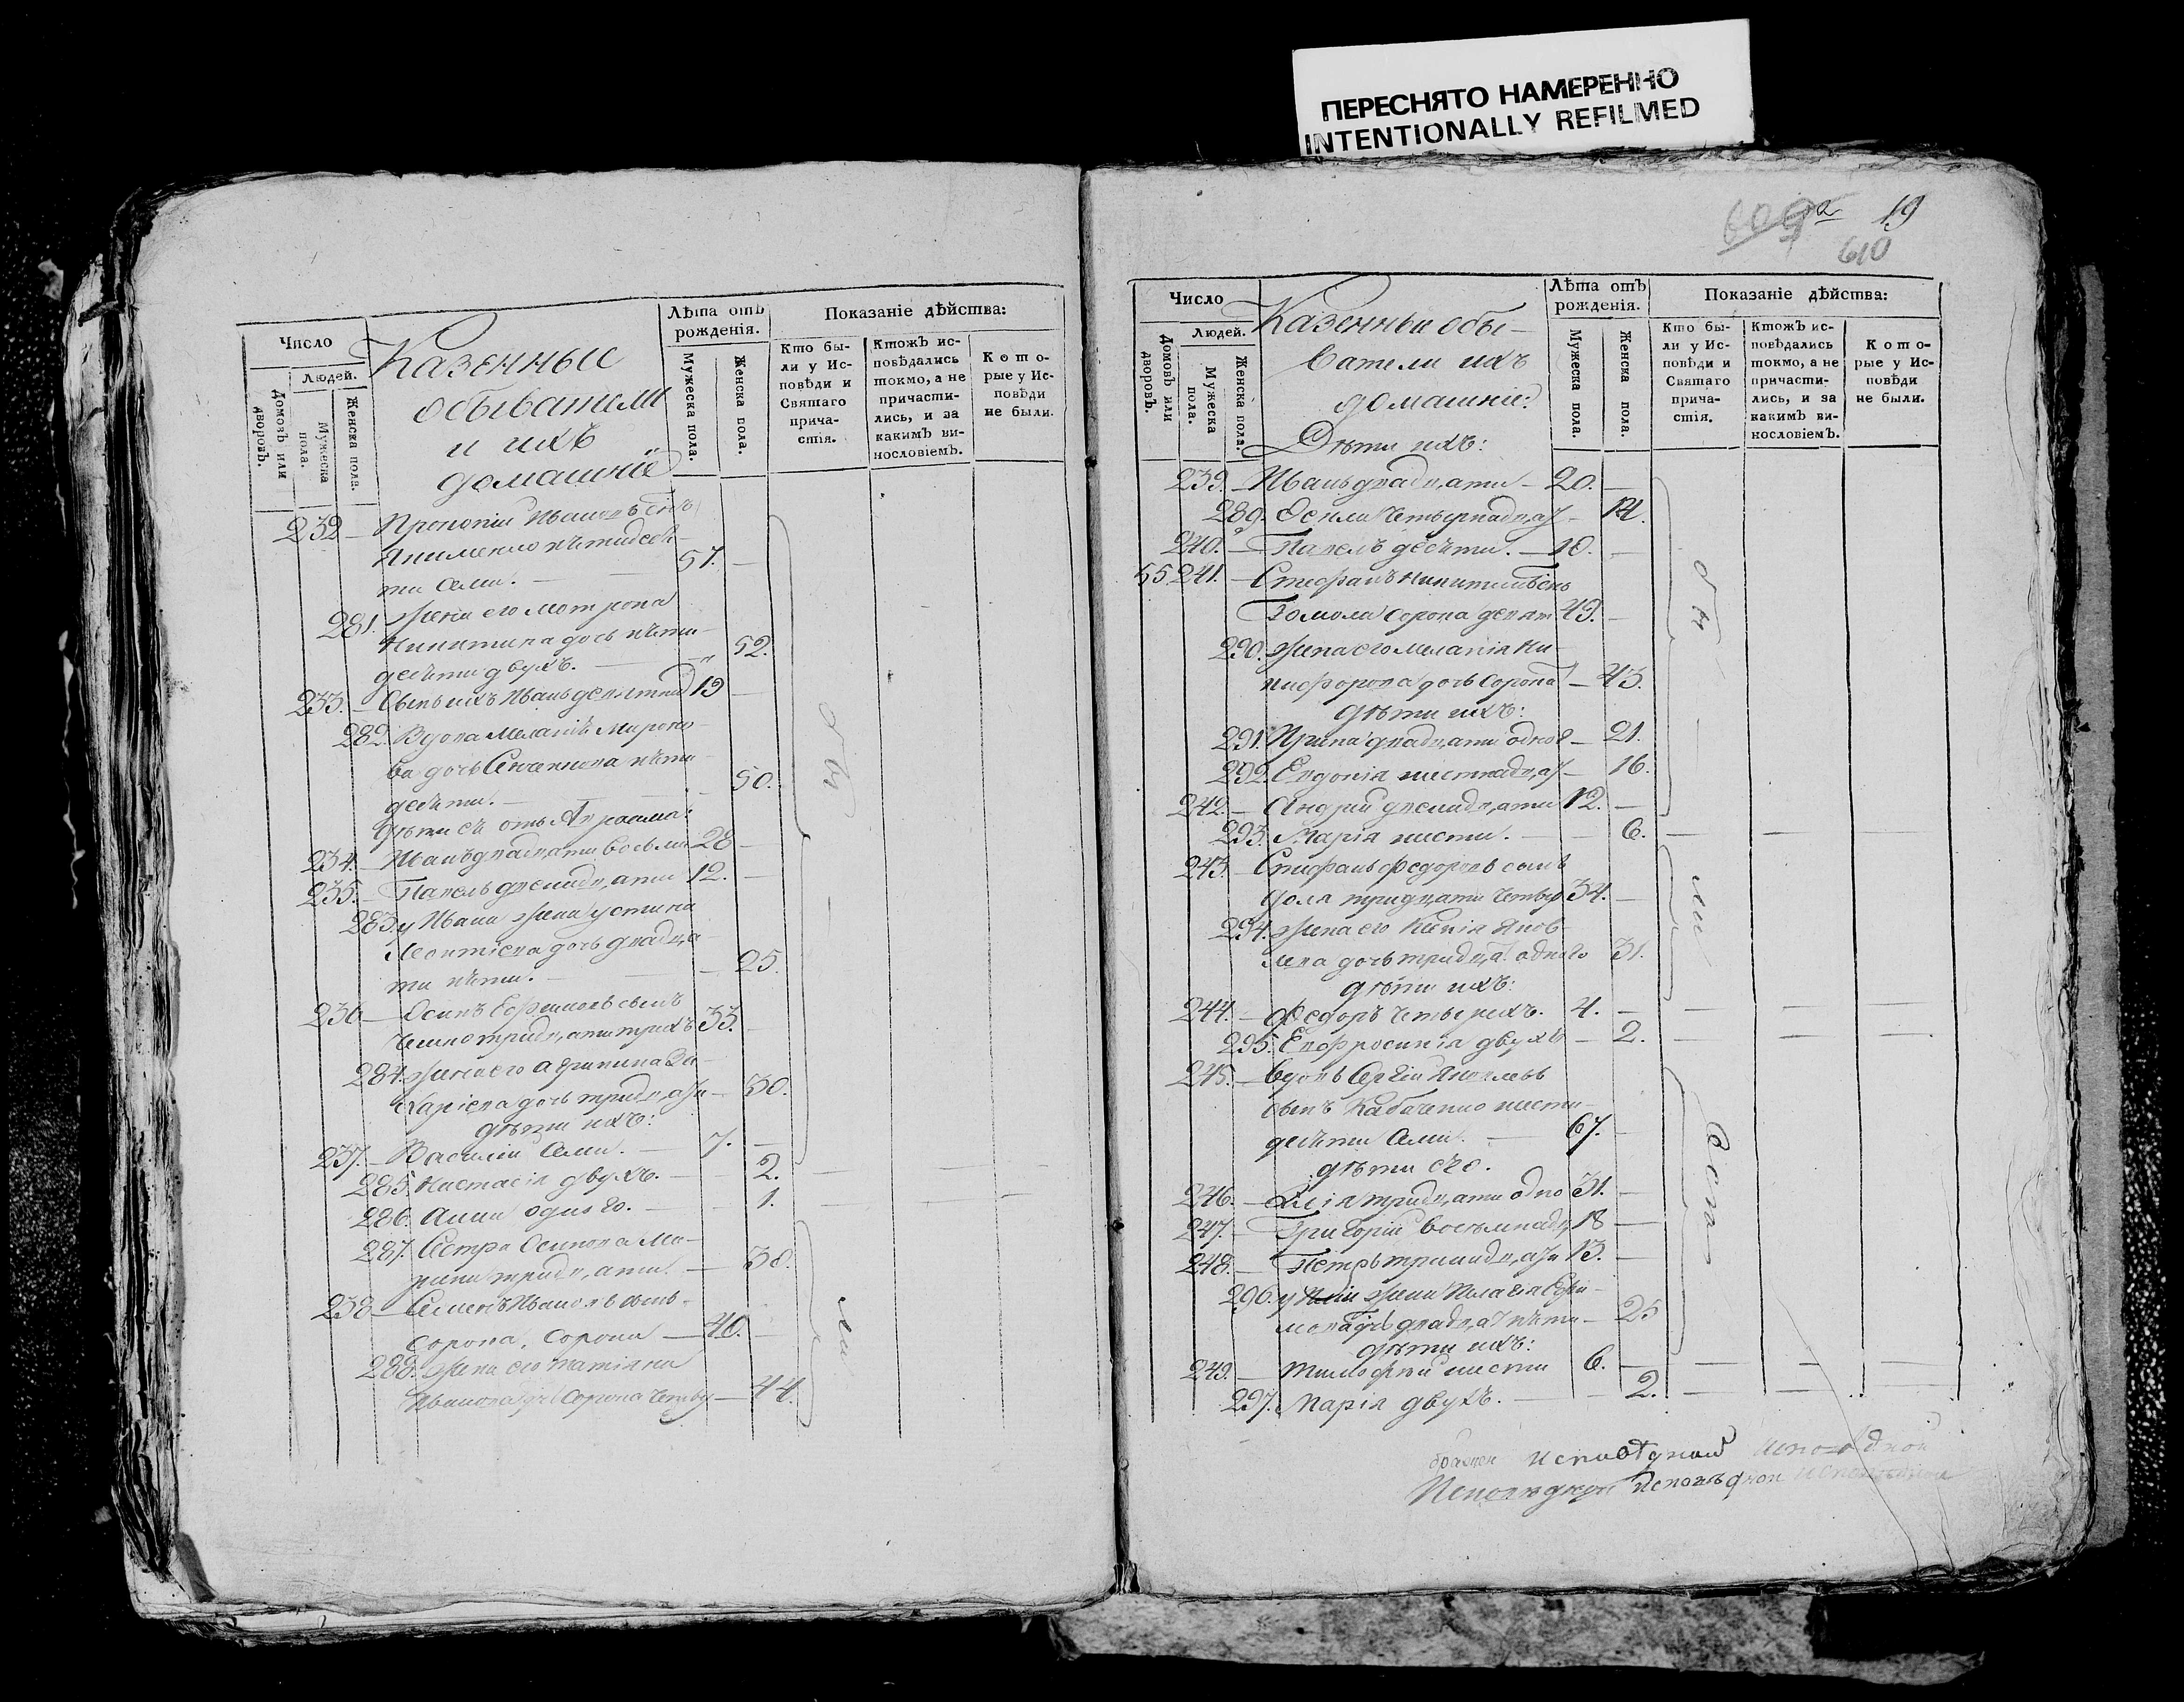 ПЕРЕСНЯТО НАМЕРЕННО
INTENTIONALLY REFILMED
Число
Людей.
Домовъ или дворовъ.
Мужеска пола.
Женска пола.
Казенные
обыватели
и ихъ
домашніе
Лѣта отъ
рожденія.
Мужеска пола.
Женска пола.
Показаніе дѣйства:
Кто бы-
ли у Ис-
повѣди и
Святаго
прича-
стія.
Ктожъ ис-
повѣдались
токмо, а не
причасти-
лись, и за
какимъ ви-
нословіемъ.
Кото-
рые у Ис-
повѣди
не были.
232 Прокопій Ивановъ снъ
Якименко пятидеся-
ти семи. 57.
281. Жена его Мотрона
Никитина дочь пяти-
десяти двухъ. 52.
233. Сынъ ихъ Иванъ девятнад 19
282. Вдова Меланія Миро­но-
ва дочь пяти-
десяти. 50.
Дѣти ея отъ
234. Иванъ двадцати восьми 28
235. Павелъ двенадцати 12.
283. у Ивана жена Устина
Леонтіева дочь двадца-
ти пяти. 25.
236 Осипъ Ефимовъ сынъ
тридцати трехъ 33.
284. Жена его Агрипина За-
харіева дочь тридцати 30.
дѣти ихъ:
237. Василій семи. 7.
285. Настасія двухъ. 2.
286. Анна одного. 1.
287. Сестра Осипова Ма-
рина тридцати. 30.
238 Семенъ Ивановъ сынъ
Сорока, сорока 40.
288. Жена его Татіяна
Иванова дч сорока четыр 44.
обы
ли
609 19
610
Число
Людей.
Домовъ или дворовъ.
Мужеска пола.
Женска пола.
Казенныи обы-
ватели ихъ
домашніе:
Дѣти ихъ:
Лѣта отъ
рожденія.
Мужеска пола.
Женска пола.
Показаніе дѣйства:
Кто бы-
ли у Ис-
повѣди и
Святаго
прича-
стія.
Ктожъ ис-
повѣдались
токмо, а не
причасти-
лись, и за
какимъ ви-
нословіемъ.
Кото-
рые у Ис-
повѣди
не были.
239. Иванъ двадцати 20.
289. четырнадцат 14.
240. Павелъ десяти. 10.
55. 241. Стефанъ Никитинъ снъ
Гомола сорока девят 49.
290. Жена его Меланія Ни-
кифорова дочь сорока 43.
дѣти ихъ:
291. Ирина двадцати одной 21.
292. Евдокія шестнадцат 16.
242. Андрій двенадцати 12.
293. Марія шести. 6.
243. Стефанъ Федоровъ сынъ
тридцати четыр 34.
294. Жена его Ксенія Яков-
лева дочь тридцат одного 31.
дѣти ихъ:
244. Федоръ четырехъ. 4.
295. Евфросинія двухъ 2.
245. Вдовъ Сергій Яковлевъ
сынъ Кабаченко шести-
десяти семи. 67.
дѣти его.
246. Илія тридцати одно 31.
247. Григорій восемнадц 18
248. Петръ тринадцати 13.
296. у Иліи жена Пелагія Ефи-
мова дчь двадцат пяти 25
дѣти ихъ:
249. Тимофей шести 6.
297. Марія двухъ. 2.
Исповѣдной Исповѣдной
Исповѣдной Исповѣдной Исповѣдной